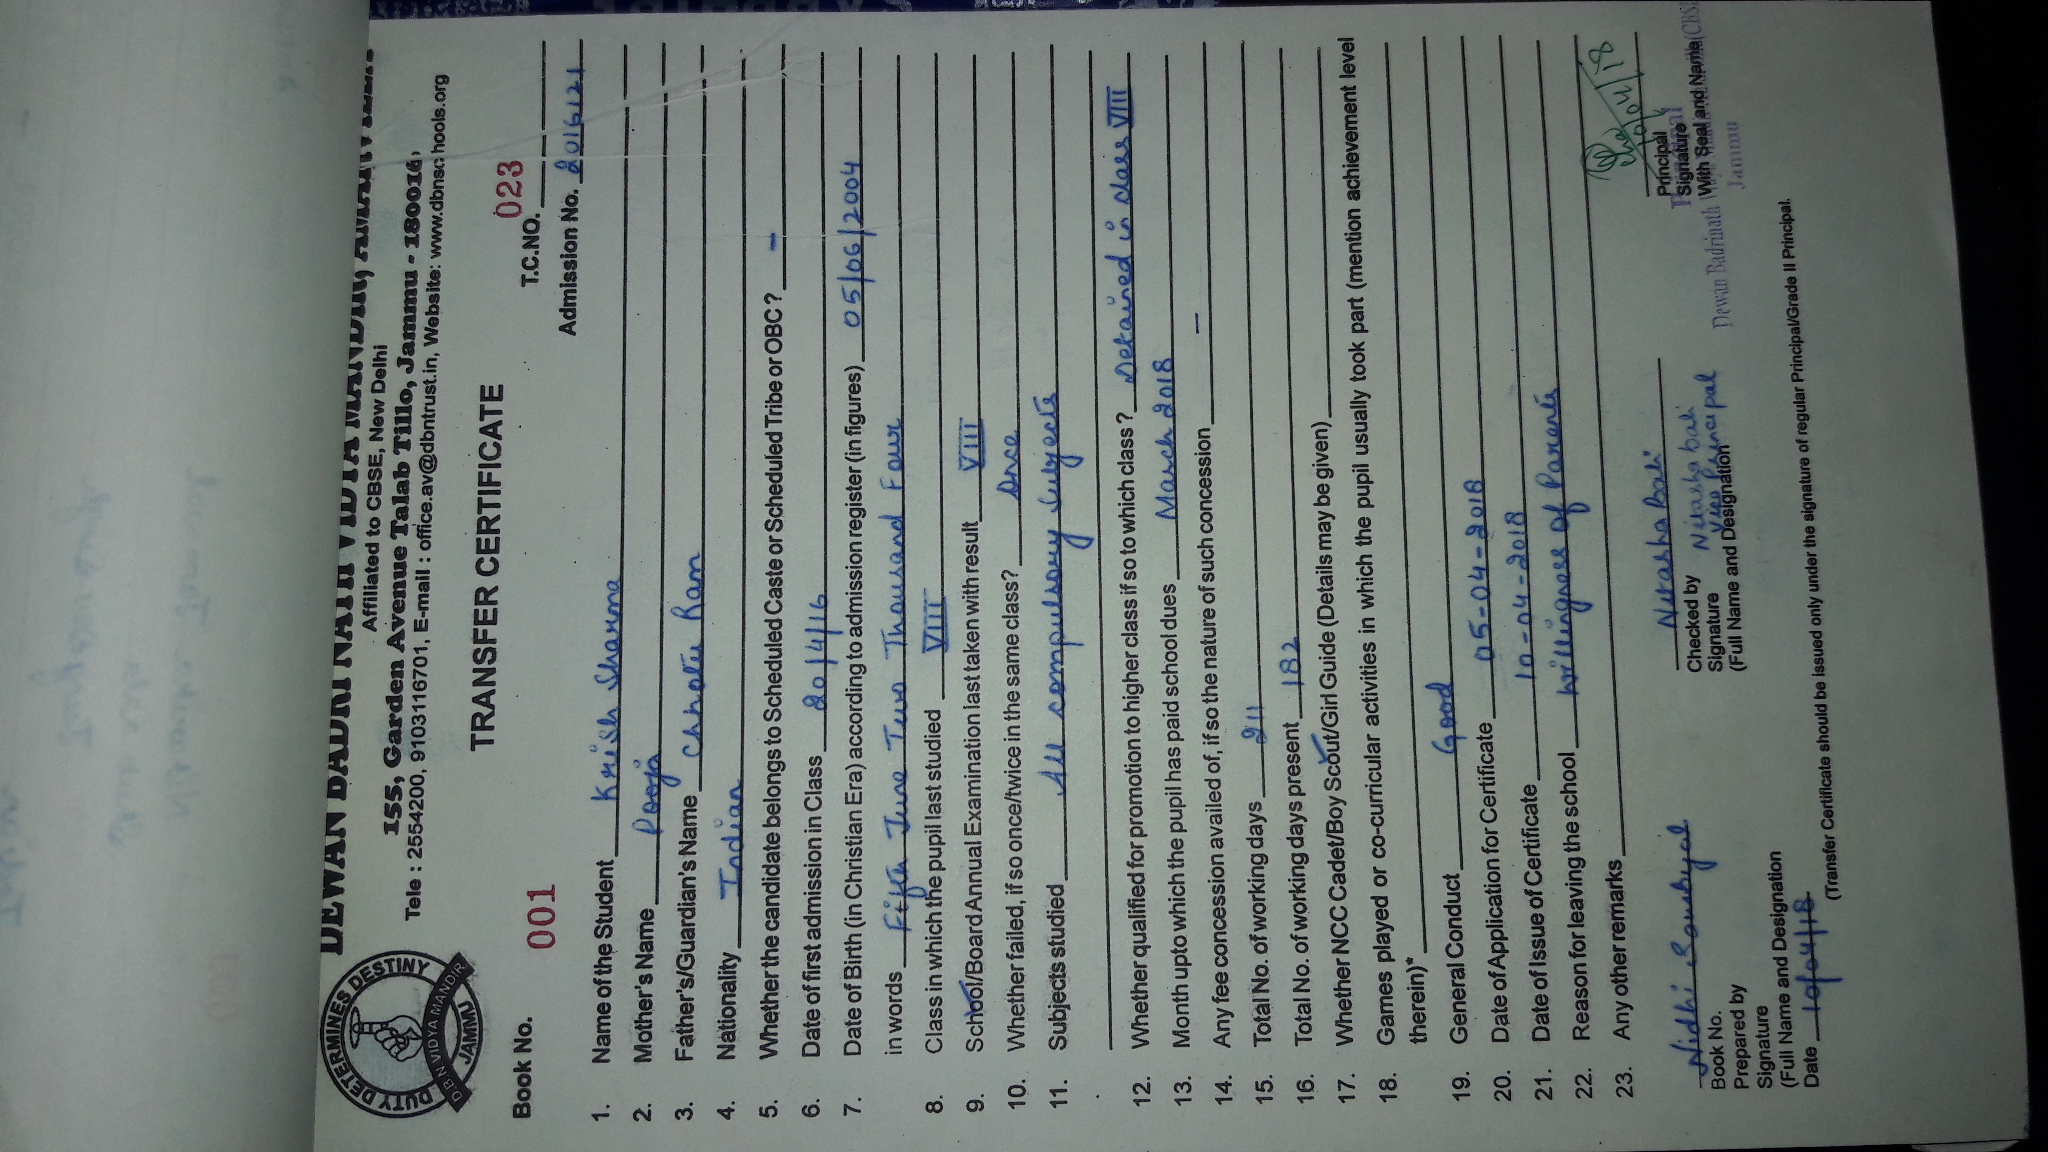 DEWAN BADRI NATH VIDYA MANDIR, AMANVEER
Affiliated to CBSE, New Delhi
155, Garden Avenue Talab Tillo, Jammu - 180016,
Tele : 2554200, 9103116701, E-mail : office.av@dbntrust.in, Website: www.dbnschools.org
DUTY DETERMINES DESTINY
DBN VIDYA MANDIR
JAMMU
TRANSFER CERTIFICATE
Book No. 001 T.C.NO. 023
Admission No. 2016121
1. Name of the Student Krish Sharma
2. Mother's Name Pooja
3. Father's/Guardian's Name Chhotu Ram
4. Nationality Indian
5. Whether the candidate belongs to Scheduled Caste or Scheduled Tribe or OBC? -
6. Date of first admission in Class 20/4/16
7. Date of Birth (in Christian Era) according to admission register (in figures) 05/06/2004
in words Fifth June Two Thousand Four
8. Class in which the pupil last studied VIII
9. School/Board Annual Examination last taken with result VIII
10. Whether failed, if so once/twice in the same class? Once
11. Subjects studied All compulsory Subjects
12. Whether qualified for promotion to higher class if so to which class? Detained in class VIII
13. Month upto which the pupil has paid school dues March 2018
14. Any fee concession availed of, if so the nature of such concession -
15. Total No. of working days 211
16. Total No. of working days present 182
17. Whether NCC Cadet/Boy Scout/Girl Guide (Details may be given)
18. Games played or co-curricular activities in which the pupil usually took part (mention achievement level
therein)*
19. General Conduct Good
20. Date of Application for Certificate 05-04-2018
21. Date of Issue of Certificate 10-04-2018
22. Reason for leaving the school willingness of Parents
23. Any other remarks
Nidhi
Book No.
Prepared by
Signature
(Full Name and Designation
Date 10/04/18
Nitasha Bali
Checked by Nitasha bali
Signature Vice Principal
(Full Name and Designation
10/04/18
Principal
Signature
With Seal and Name
Principal
Dewan Badrinath (CBSE
Jammu
(Transfer Certificate should be issued only under the signature of regular Principal/Grade II Principal.